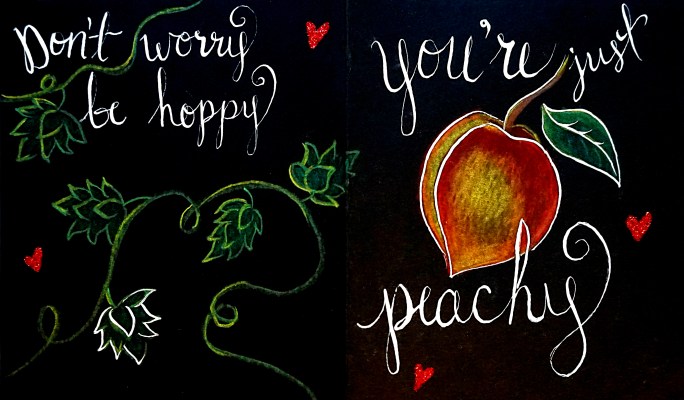 Don't worry
be hoppy
you're just
peachy